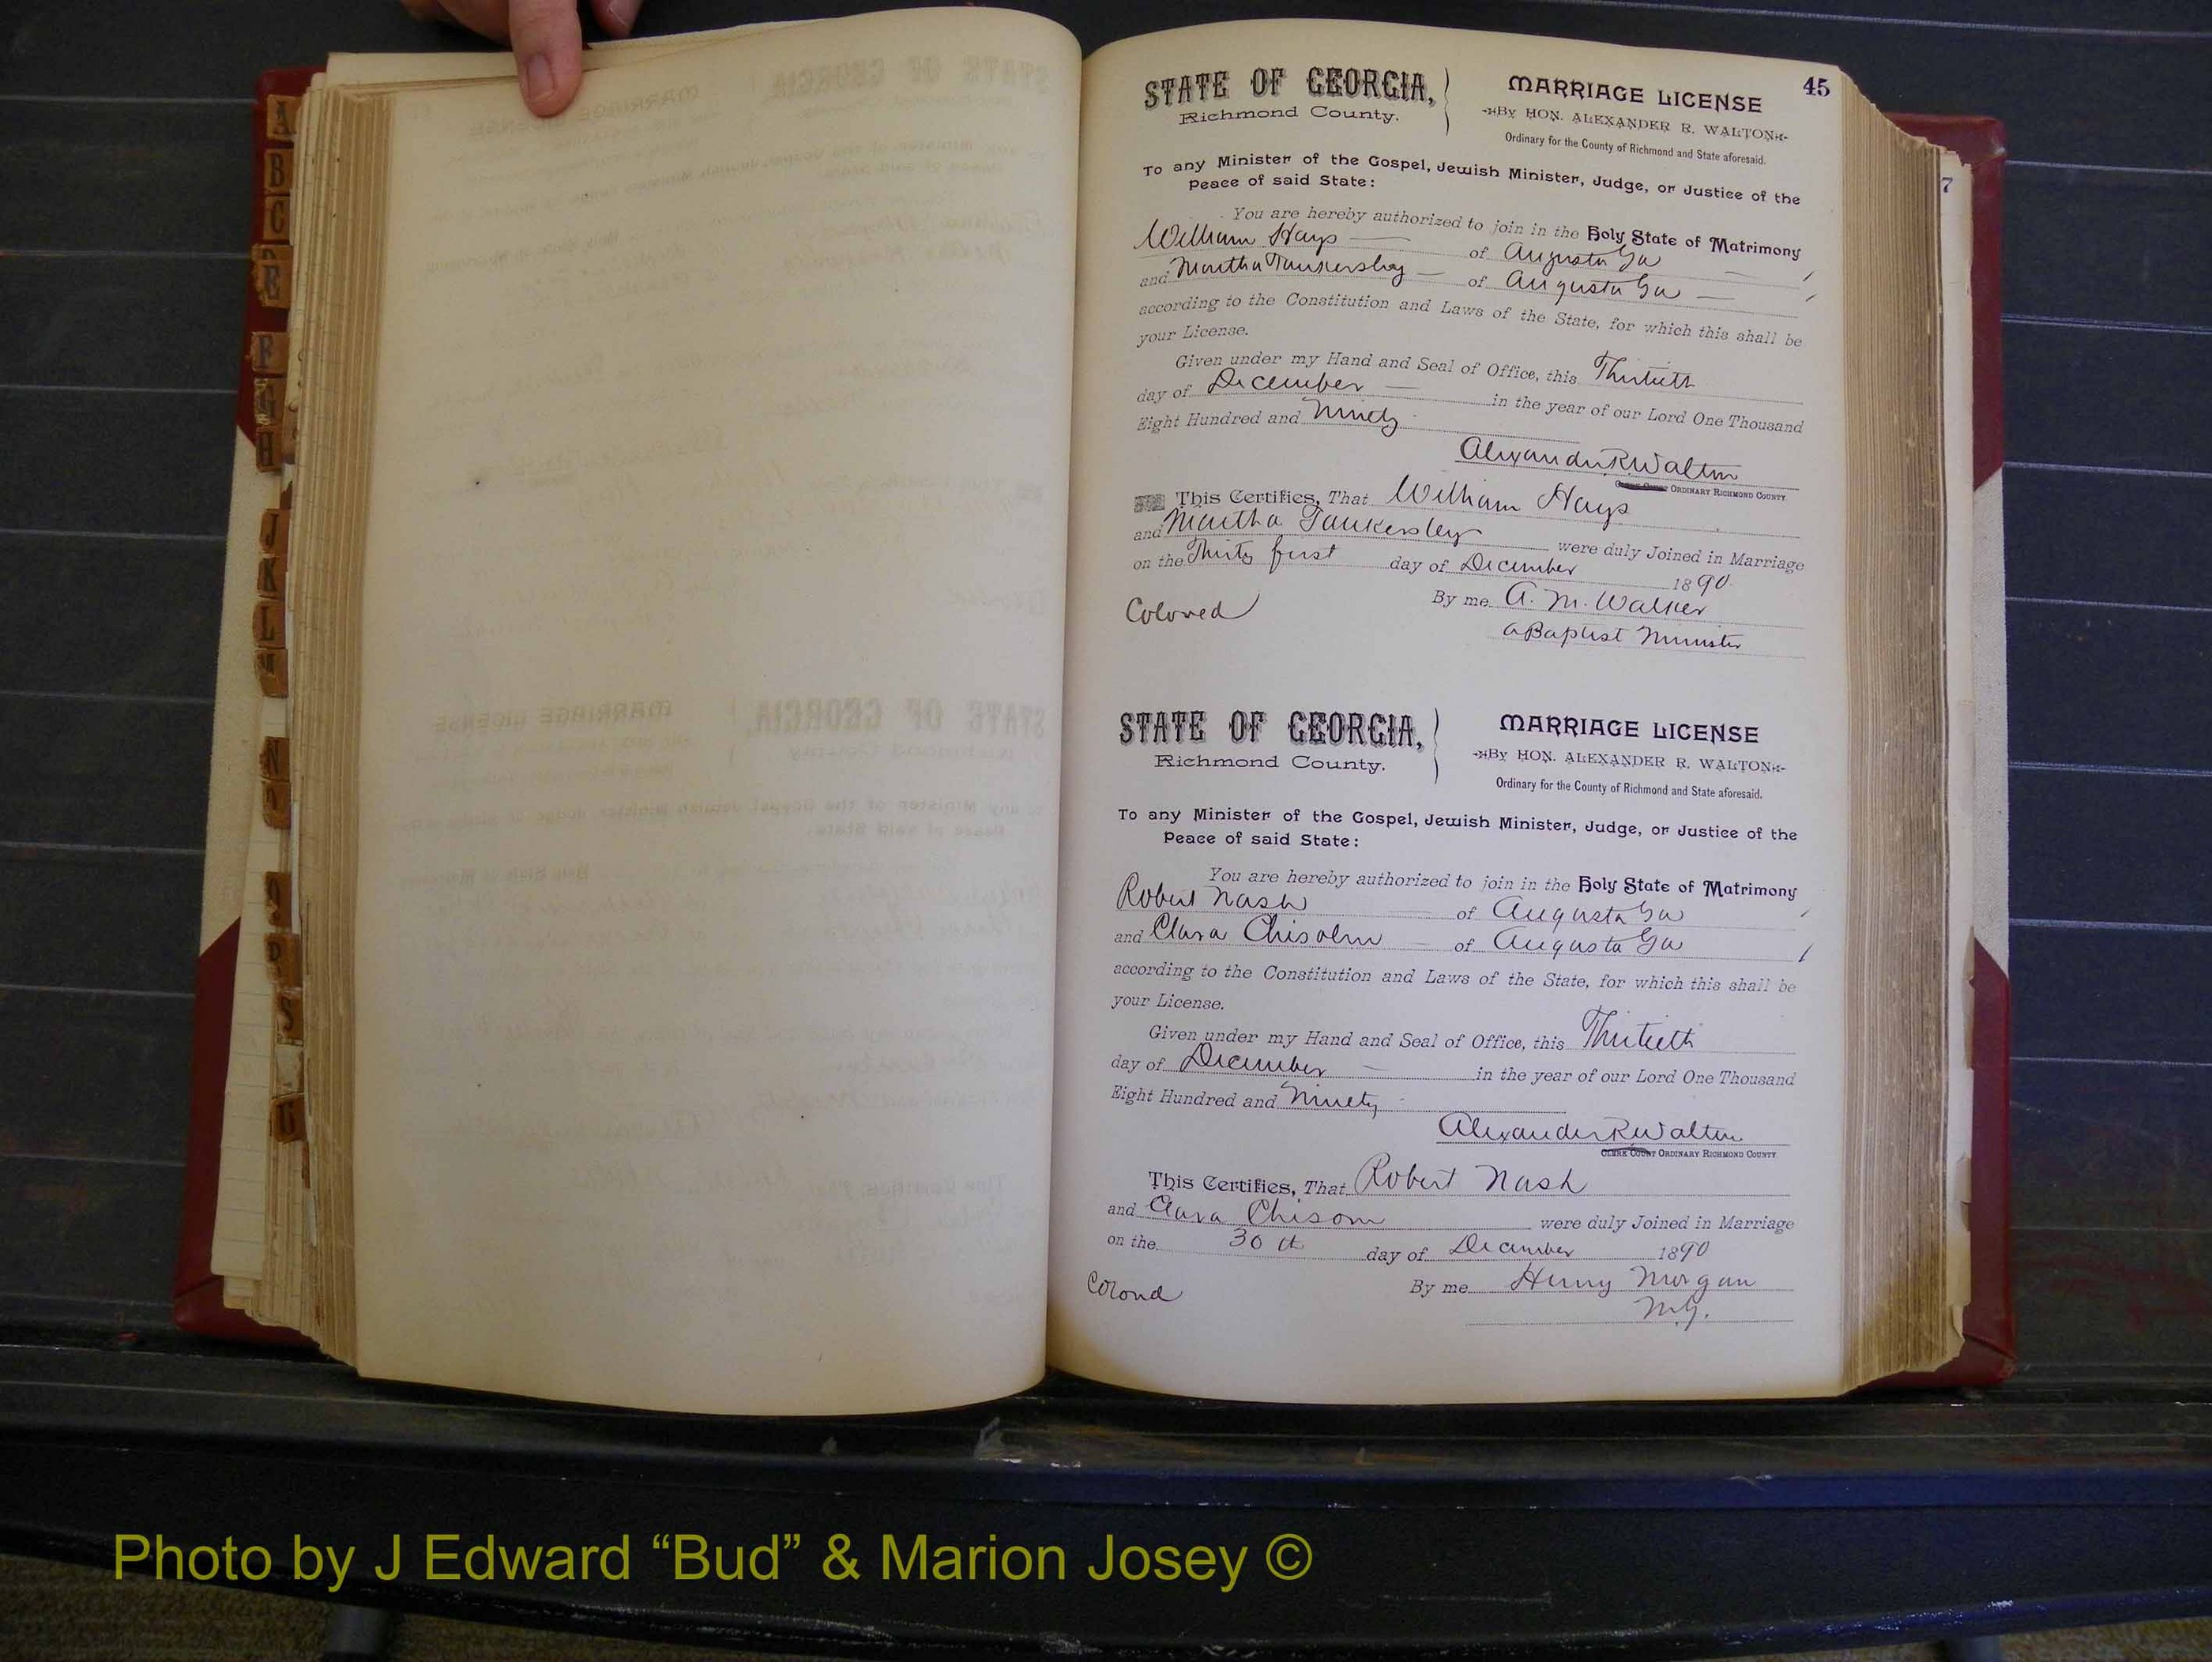 45
STATE OF GEORGIA,
Richmond County.
MARRIAGE LICENSE
By HON. ALEXANDER R. WALTON
Ordinary for the County of Richmond and State aforesaid.
To any Minister of the Gospel, Jewish Minister, Judge, or Justice of the
Peace of said State:
You are hereby authorized to join in the Holy State of Matrimony
William Hays of Augusta Ga
and Martha Tankersley of Augusta Ga
according to the Constitution and Laws of the State, for which this shall be
your License.
Given under my Hand and Seal of Office, this Thirtieth
day of December in the year of our Lord One Thousand
Eight Hundred and Ninety
Alexander R Walton
ORDINARY RICHMOND COUNTY.
This Certifies, That William Hays
and Martha Tankersley were duly Joined in Marriage
on the Thirty first day of December 1890
By me A. M. Walker
Colored
a Baptist Minister
STATE OF GEORGIA,
Richmond County.
MARRIAGE LICENSE
By HON. ALEXANDER R. WALTON
Ordinary for the County of Richmond and State aforesaid.
To any Minister of the Gospel, Jewish Minister, Judge, or Justice of the
Peace of said State:
You are hereby authorized to join in the Holy State of Matrimony
Robert Nash of Augusta Ga
and Clara Chisolm of Augusta Ga
according to the Constitution and Laws of the State, for which this shall be
your License.
Given under my Hand and Seal of Office, this Thirtieth
day of December in the year of our Lord One Thousand
Eight Hundred and Ninety
Alexander R Walton
CLERK COURT ORDINARY RICHMOND COUNTY
This Certifies, That Robert Nash
and Clara Chisom were duly Joined in Marriage
on the 30th day of December 1890
Colored
By me Henry Morgan
M.G.
7
A
B
C
E
F
G
H
J
K
L
M
N
S
Photo by J Edward “Bud” & Marion Josey ©